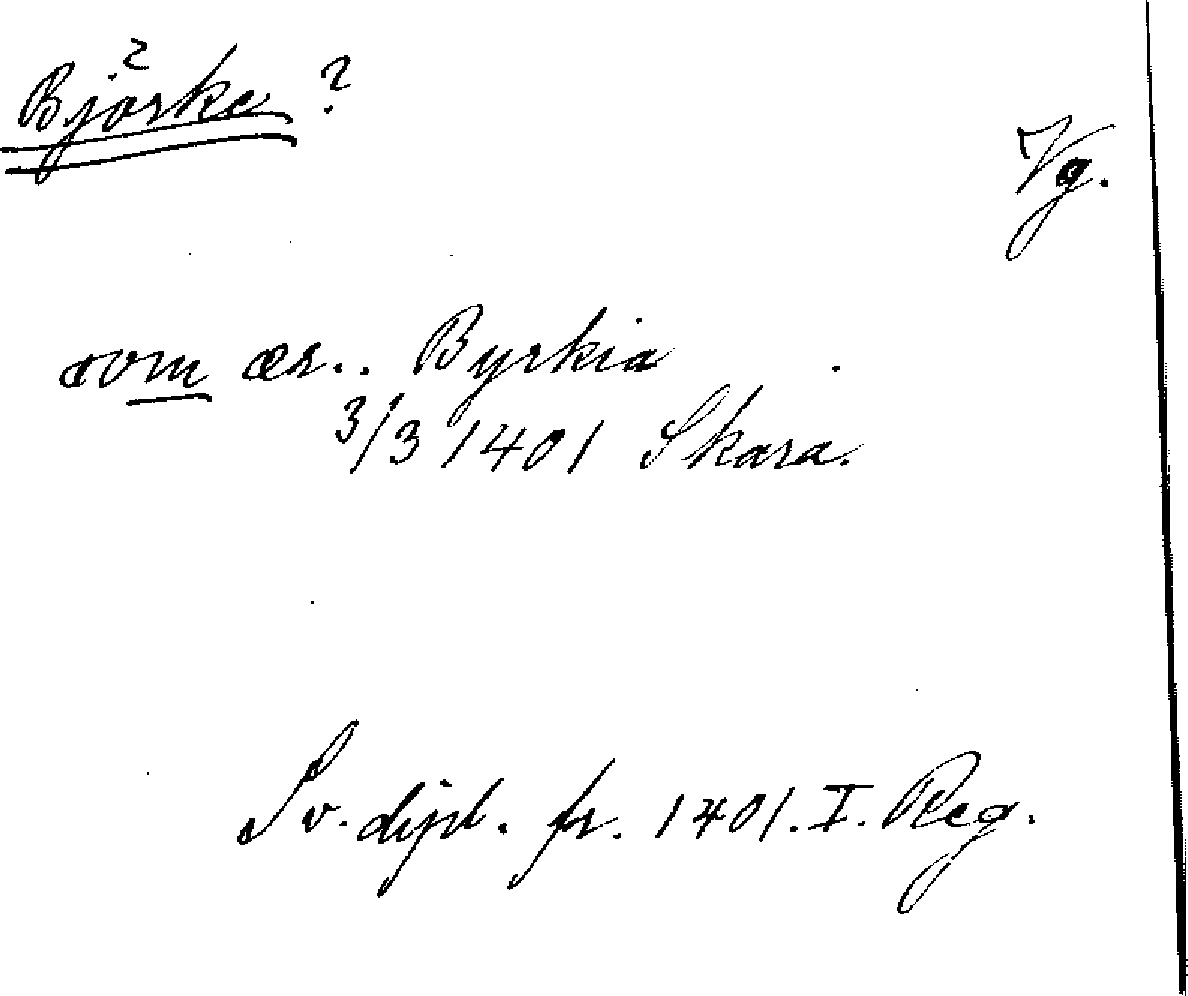 Björke ?
Vg.
som ær.. Byrkia
3/3 1401 Skara.
Sv. dipl. fr. 1401. I. Reg.